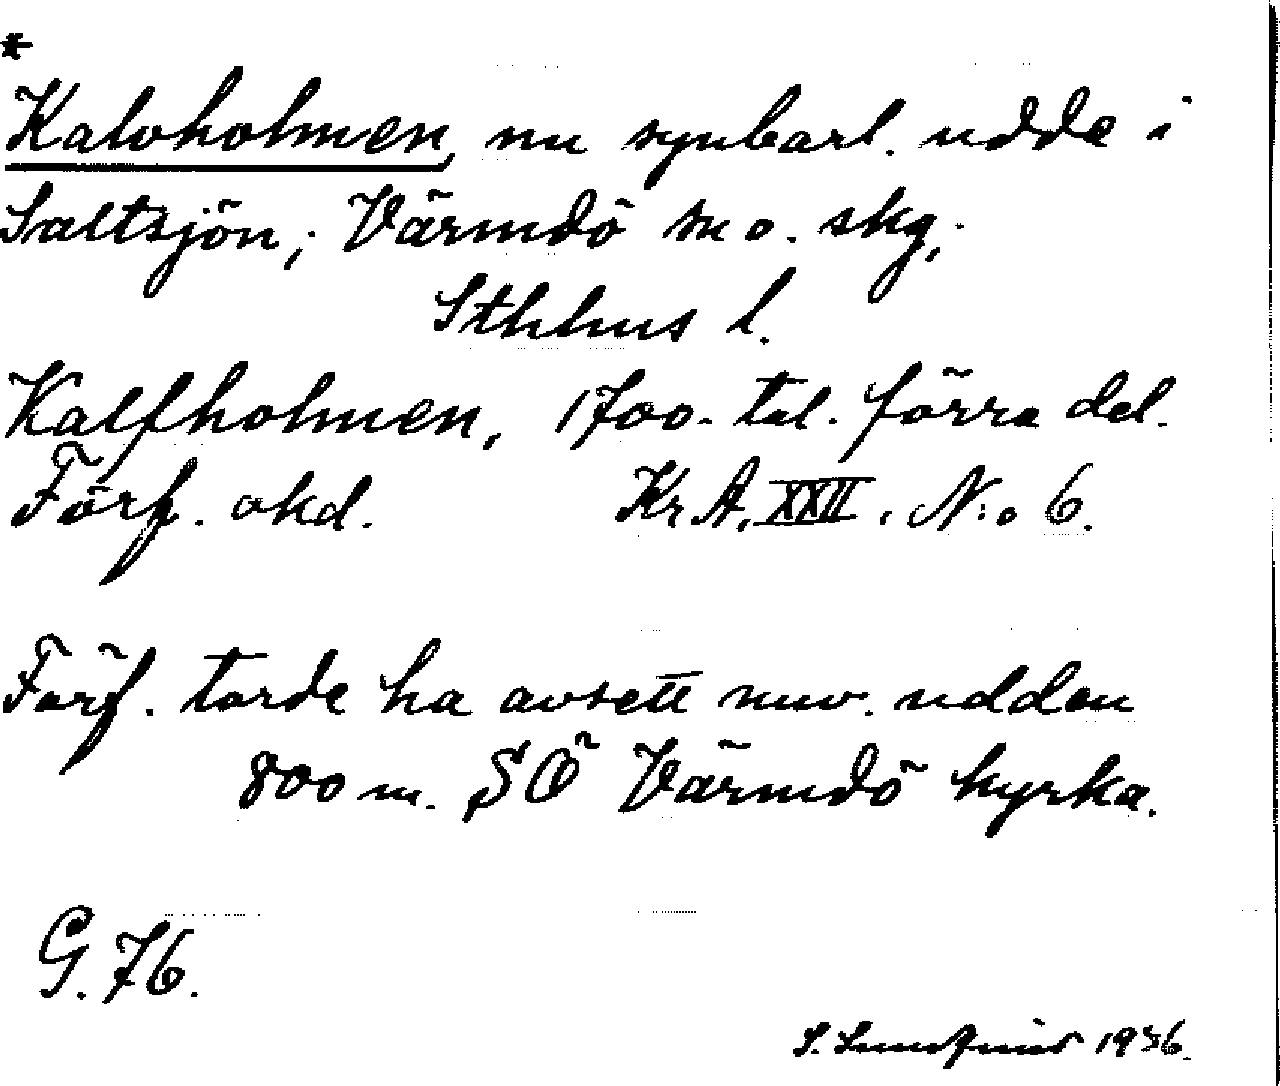 *
Kalvholmen, nu synbarl. udde i
Saltsjön; Värmdö sn o. skg,
Sthlms l.
Kalfholmen, 1700-tal. förra del.
Förf. okd. Kr A. XXII. N:o 6.
Förf. torde ha avsett nuv. udden
800 m. SÖ Värmdö kyrka.
G. 76.
S. 1936.